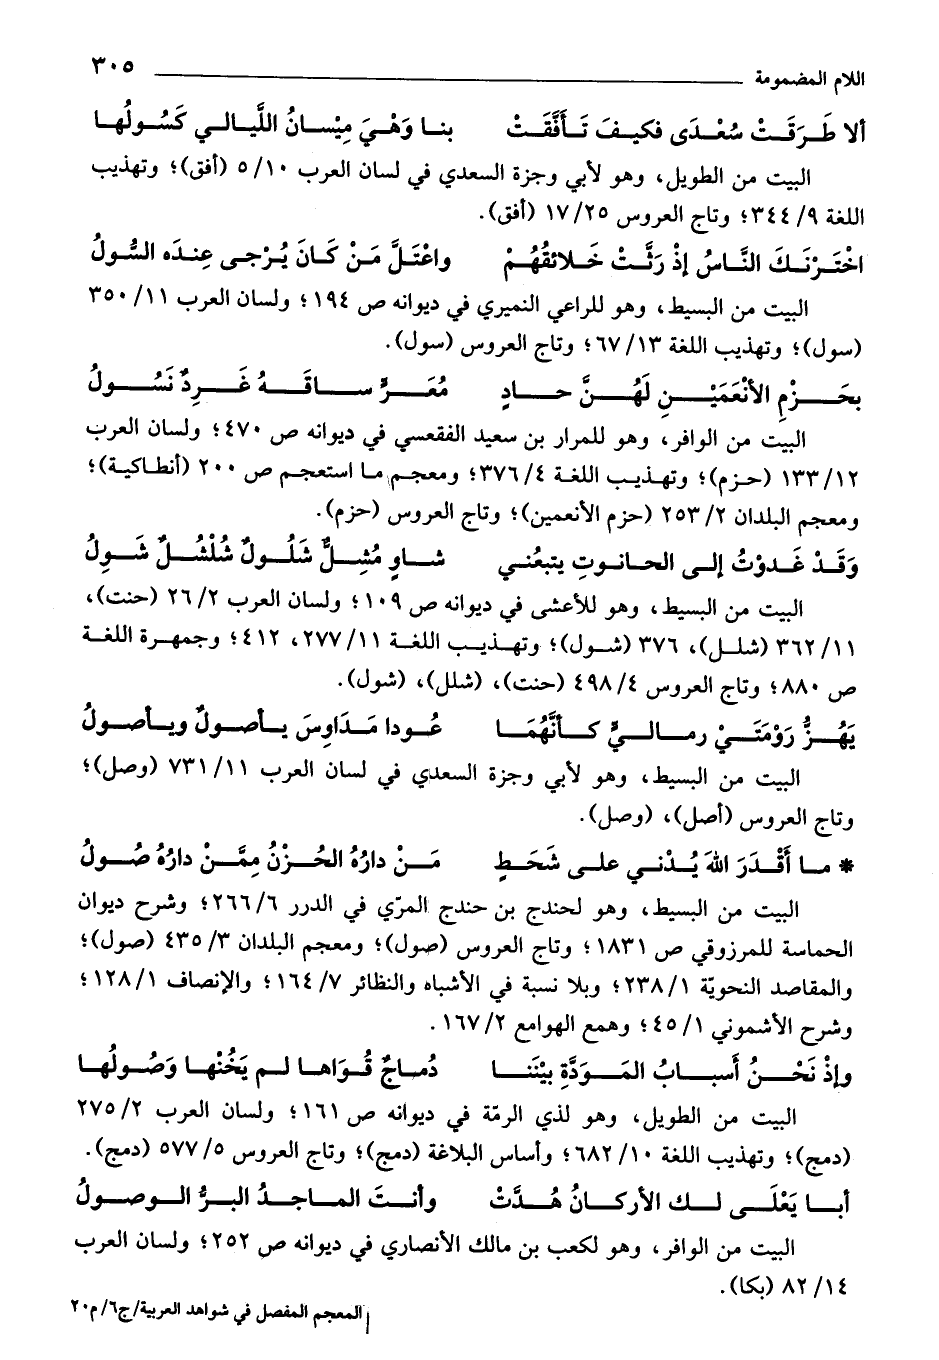 اللام المضمومة ٣٠٥
ألا طَرَقَتْ سُعْدَى فكيفَ تَأَفَّقَتْ بنا وَهْيَ مِيْسانُ اللَّيالي كَسُولُها
البيت من الطويل، وهو لأبي وجزة السعدي في لسان العرب ١٠/ ٥ (أفق)؛ وتهذيب
اللغة ٩/ ٣٤٤؛ وتاج العروس ٢٥/ ١٧ (أفق).
اخْتَرْتَكَ النَّاسُ إذْ رَثَّتْ خَلائقُهُمْ واعْتَلَّ مَنْ كَانَ يُرْجى عِندَه السُّولُ
البيت من البسيط، وهو للراعي النميري في ديوانه ص ١٩٤؛ ولسان العرب ١١/ ٣٥٠
(سول)؛ وتهذيب اللغة ١٣/ ٦٧؛ وتاج العروس (سول).
بحَزْمِ الأنْعَمَيْنِ لَهُنَّ حادٍ مُعَرٍّ ساقَهُ غَرِدٌ نَسُولُ
البيت من الوافر، وهو للمرار بن سعيد الفقعسي في ديوانه ص ٤٧٠؛ ولسان العرب
١٢/ ١٣٣ (حزم)؛ وتهذيب اللغة ٤/ ٣٧٦؛ ومعجم ما استعجم ص ٢٠٠ (أنطاكية)؛
ومعجم البلدان ٢/ ٢٥٣ (حزم الأنعمين)؛ وتاج العروس (حزم).
وَقَدْ غَدوْتُ إلى الحانوتِ يتبعُني شاوٍ مُشِلٌّ شَلُولٌ شُلْشُلٌ شَوِلُ
البيت من البسيط، وهو للأعشى في ديوانه ص ١٠٩؛ ولسان العرب ٢/ ٢٦ (حنت)،
١١/ ٣٦٢ (شلل)، ٣٧٦ (شول)؛ وتهذيب اللغة ١١/ ٢٧٧، ٤١٢؛ وجمهرة اللغة
ص ٨٨٠؛ وتاج العروس ٤/ ٤٩٨ (حنت)، (شلل)، (شول).
يَهُزُّ رَوْمَتَيْ رمالي كأنَّهُمَا عُودا مَدَاوِسَ يأصولٌ ويأصولُ
البيت من البسيط، وهو لأبي وجزة السعدي في لسان العرب ١١/ ٧٣١ (وصل)؛
وتاج العروس (أصل)، (وصل).
* ما أَقْدَرَ اللهَ يُدْني على شَحَطٍ مَنْ دارُهُ الحُزْنُ مِمَّنْ دارُهُ صُولُ
البيت من البسيط، وهو لحندج بن حندج المرّي في الدرر ٦/ ٢٦٦؛ وشرح ديوان
الحماسة للمرزوقي ص ١٨٣١؛ وتاج العروس (صول)؛ ومعجم البلدان ٣/ ٤٣٥ (صول)؛
والمقاصد النحويّة ١/ ٢٣٨؛ وبلا نسبة في الأشباه والنظائر ٧/ ١٦٤؛ والإنصاف ١/ ١٢٨؛
وشرح الأشموني ١/ ٤٥؛ وهمع الهوامع ٢/ ١٦٧.
وإذْ نَحْنُ أَسبابُ المَوَدَّةِ بيْنَنا دُماجٌ قُوَاها لم يَخُنْها وَصُولُها
البيت من الطويل، وهو لذي الرمّة في ديوانه ص ١٦١؛ ولسان العرب ٢/ ٢٧٥
(دمج)؛ وتهذيب اللغة ١٠/ ٦٨٢؛ وأساس البلاغة (دمج)؛ وتاج العروس ٥/ ٥٧٧ (دمج).
أبا يَعْلَى لك الأركانُ هُدَّتْ وأنتَ الماجدُ البرُّ الوصولُ
البيت من الوافر، وهو لكعب بن مالك الأنصاري في ديوانه ص ٢٥٢؛ ولسان العرب
١٤/ ٨٢ (بكا).
المعجم المفصل في شواهد العربية/ج٦/م٢٠